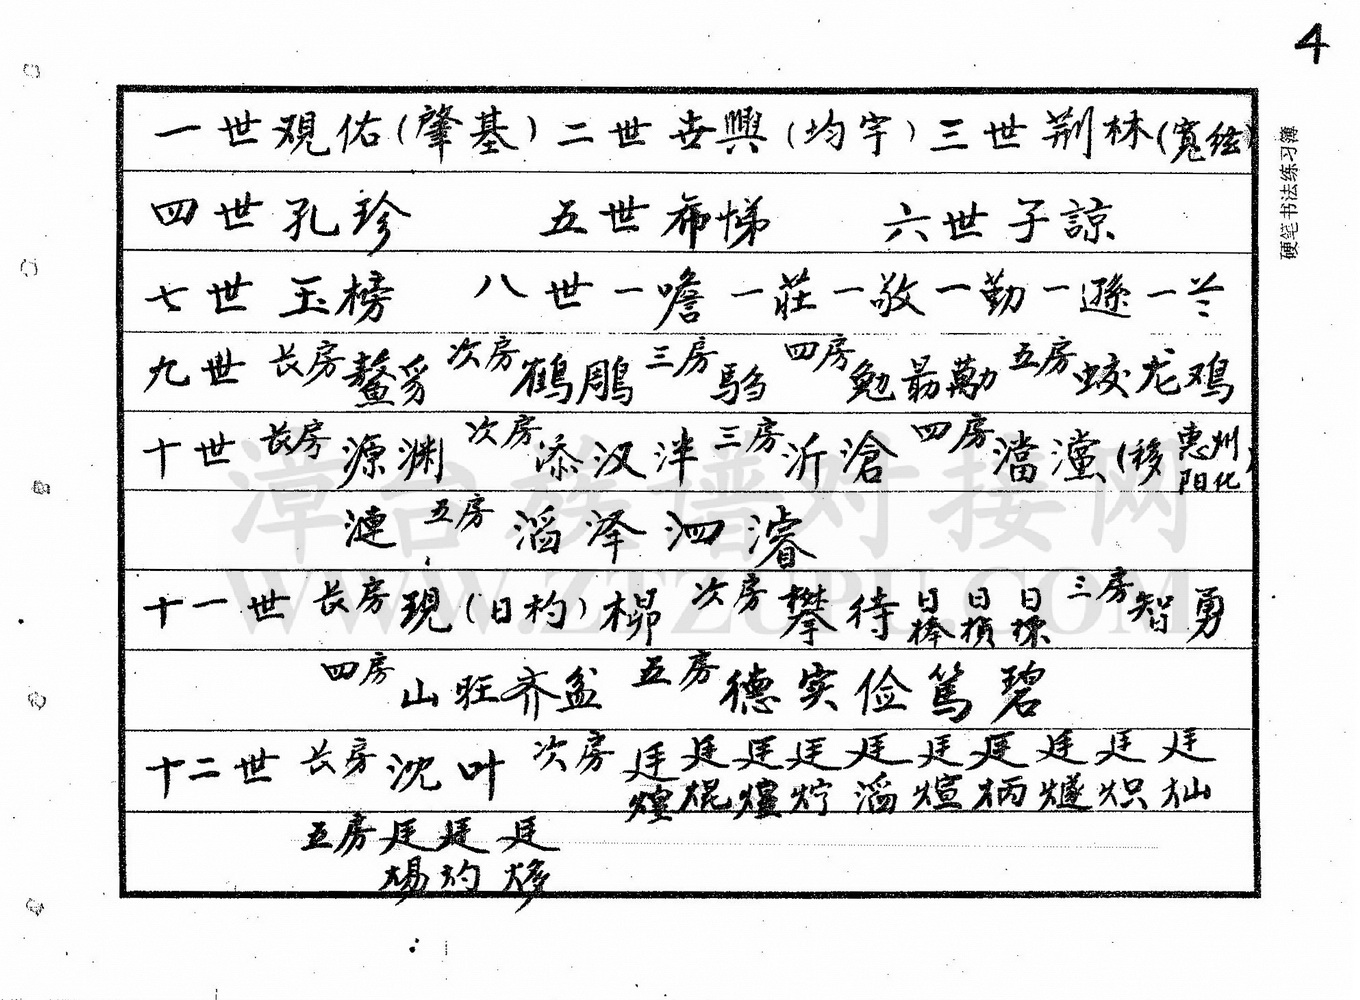 4
一世观佑(肇基)二世世興(均宇)三世荆林(寬绘)
四世孔珍 五世希悌 六世子諒
七世玉榜 八世一噡一莊一敬一勤一遜一兰
九世 长房 鳌豸 次房 鶴鵰 三房 駋 四房 勉勗勱 五房 蛟龙鸡
十世 長房 源渊 次房 添汉泮 三房 沂滄 四房 澢灙(移惠州阳化)
漣 五房 滔泽泗濬
十一世 长房 現(日杓)楖 次房 攀待 日棒 日横 日標 三房 智勇
四房 山旺齐盆 五房 德实俭篤碧
十二世 长房 沈叶 次房 廷 廷焜 廷 廷炉 廷滔 廷煊 廷炳 廷燧 廷炽 廷灿
五房 廷煬 廷灼 廷熮
硬笔书法练习簿
漳台族谱对接网
WWW.ZTZUPU.COM